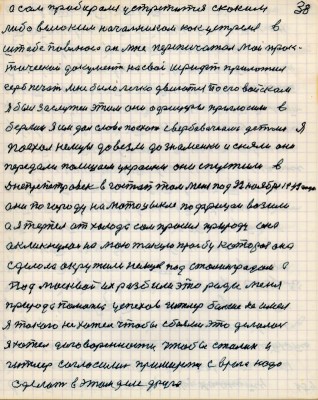 38
а сам пробирали устремится с каким
либо высоким начальником как устрем в
штабе полвного он мне перепечатал мои прак-
тический документ на свой шрифт приложил
серб печать мне было легко двигатся по его войскам
я был заслужен этим они офицеры пригласили в
берлин я им дал слово поскот с вербовачами детьми я
поехал немцы довезли до знаменки и сняли оне
передали полицаям украины они спустили в
Днепрпетровск в гостап там меня под 22 ноября 1943 года
они по городу на мотоцикле по дарицам возили
а я терпел от холода сам просил природу она
откликнулась на мою такую прозьбу которая она
сделала окружили немцев под сталинградом а
под москвой их разбили это ради меня
природа помогла успехов гитлер больше не имел
я такого не хотел чтобы с вами это делалось
я хотел договоренности чтобы сталин и
гитлер согласились примирить с врага надо
сделать в этом деле друга